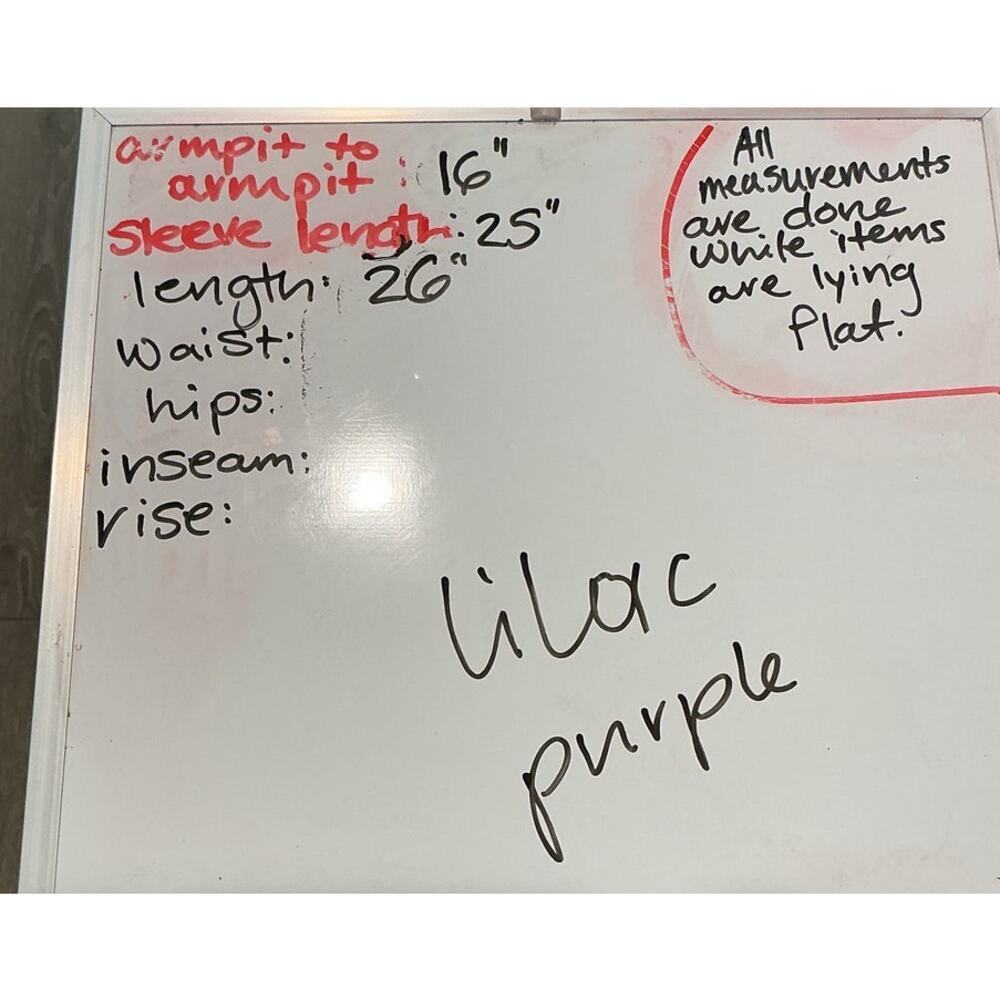 armpit to
armpit : 16"
sleeve length: 25"
length: 26"
waist:
hips:
inseam:
rise:
All
measurements
are done
while items
are lying
flat.
lilac
purple